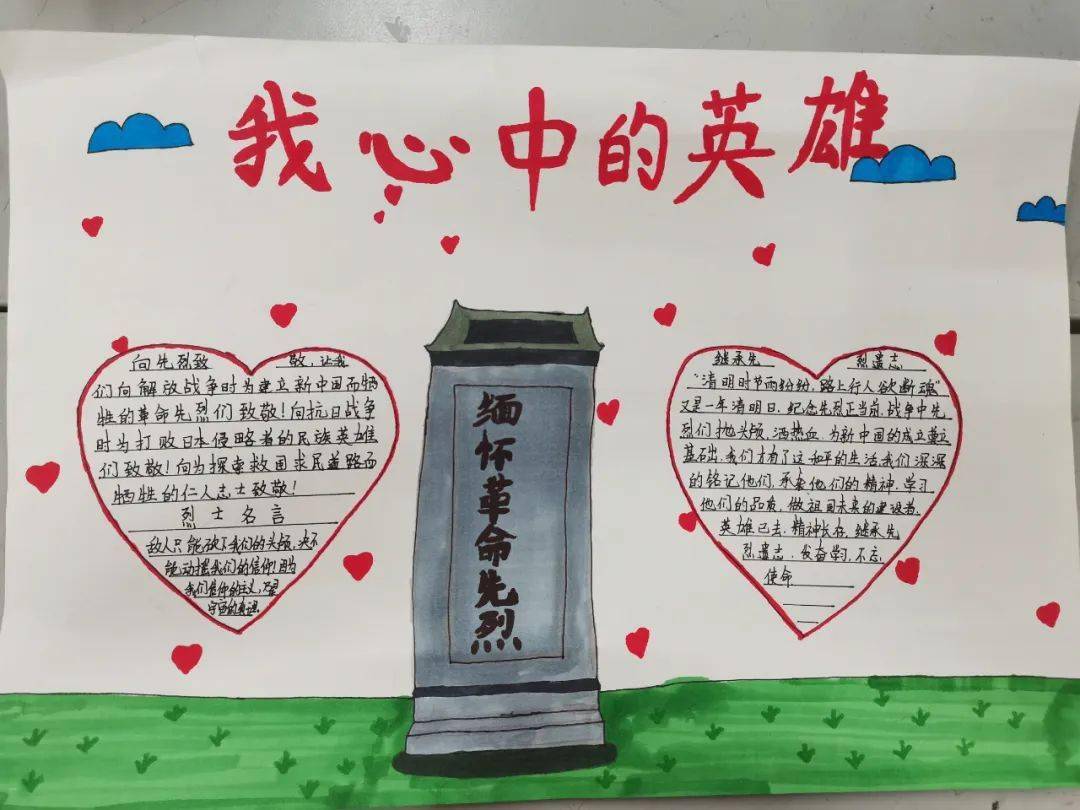 我心中的英雄
向先烈致敬,让我
们向解放战争时为建立新中国而牺
牲的革命先烈们致敬!向抗日战争
时为打败日本侵略者的民族英雄
们致敬!向为探索救国求民道路而
牺牲的仁人志士致敬!
烈士名言
敌人只能砍下我们的头颅,决不
能动摇我们的信仰!因为
我们信仰的主义,乃是
宇宙的真理
缅怀革命先烈
继承先烈遗志
“清明时节雨纷纷,路上行人欲断魂”
又是一年清明日,纪念先烈正当前,战争中先
烈们抛头颅,洒热血,为新中国的成立奠定
基础,我们才有了这和平的生活,我们深深
的铭记他们,承秉他们的精神,学习
他们的品质,做祖国未来的建设者,
英雄已去,精神长存,继承先
烈遗志,发奋学习,不忘
使命